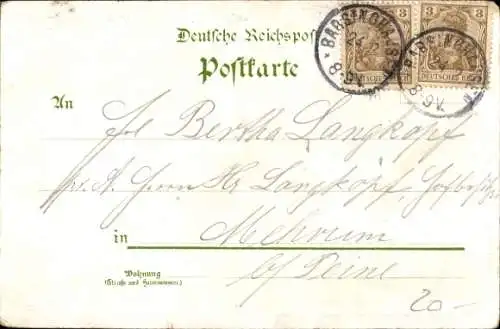 Deutsche Reichspost
Postkarte
3 3
BARSINGHAUSEN
8-9V.
BARSINGHAUSEN
8-9V.
DEUTSCHES REICH
An
Frl Bertha Langkopf
pr. A. Herrn Hr. Langkopf, Hofbesitzer
in Mehrum
b/ Peine
Wohnung
(Straße und Hausnummer)
20-